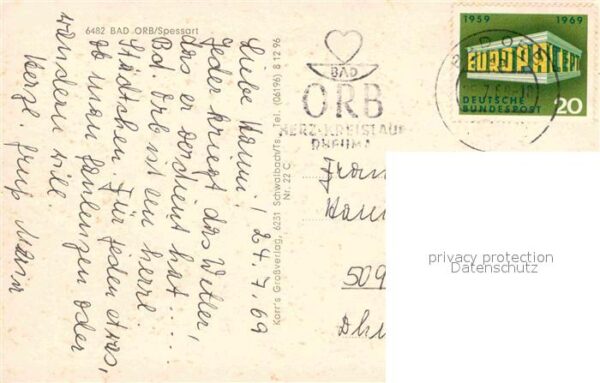 6482 BAD ORB/Spessart
Liebe Hanni! 24.7.69
Jeder kriegt das Wetter,
das er verdient hat...
Bad Orb ist ein herrl.
Städtchen. Für jeden etwas,
ob man faulenzen oder
wandern will.
Herzl.
Korr's Großverlag, 6231 Schwalbach/Ts., Tel. (06196) 8 12 96
Nr. 22 C
BAD
ORB
HERZ-KREISLAUF
RHEUMA
1959 1969
EUROPA CEPT
DEUTSCHE
BUNDESPOST 20
509
privacy protection
Datenschutz